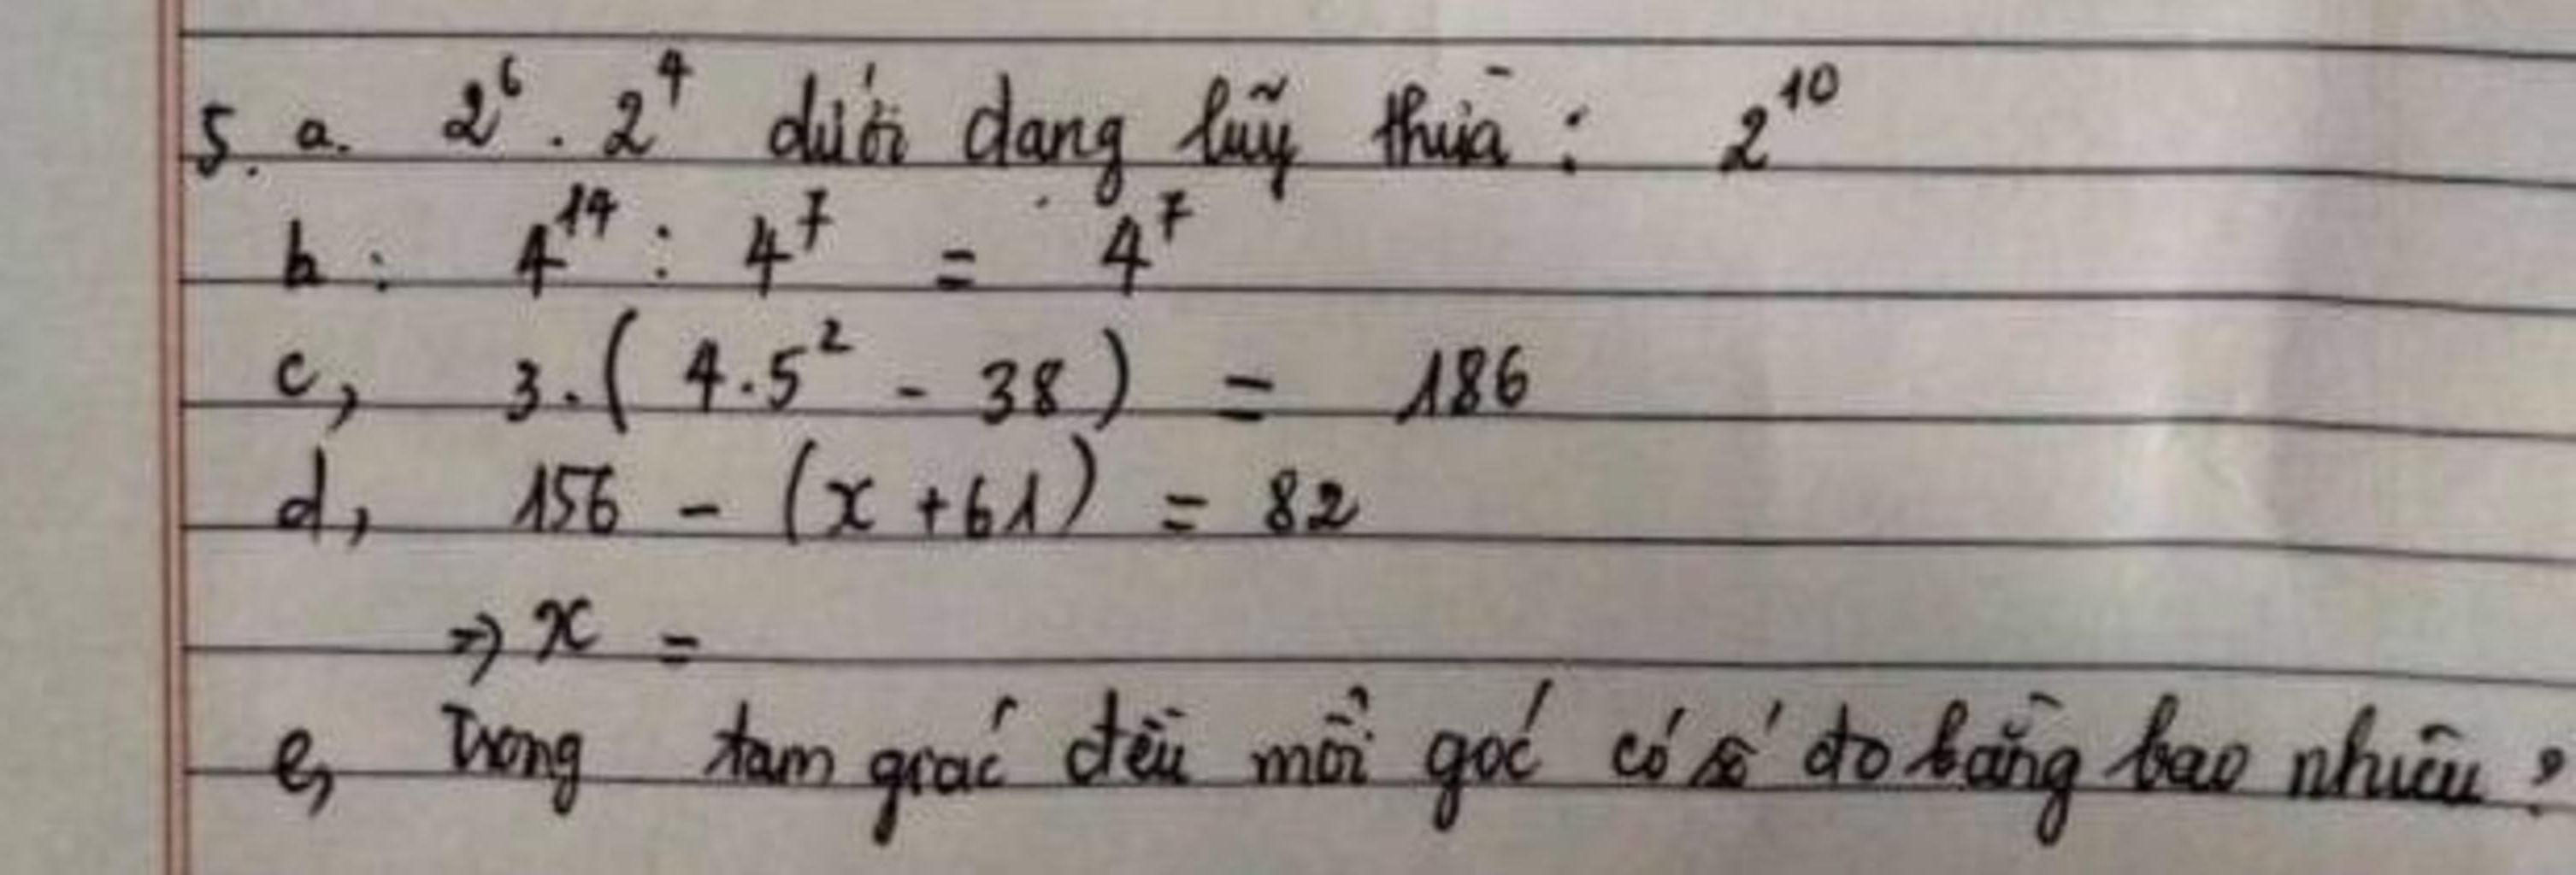 5. a. 2⁶ . 2⁴ dưới dạng luỹ thừa : 2¹⁰
b : 4¹⁴ : 4⁷ = 4⁷
c, 3.( 4.5² - 38 ) = 186
d, 156 - (x +61) = 82
=> x =
e, Trong tam giác đều mỗi góc có số đo bằng bao nhiêu ?